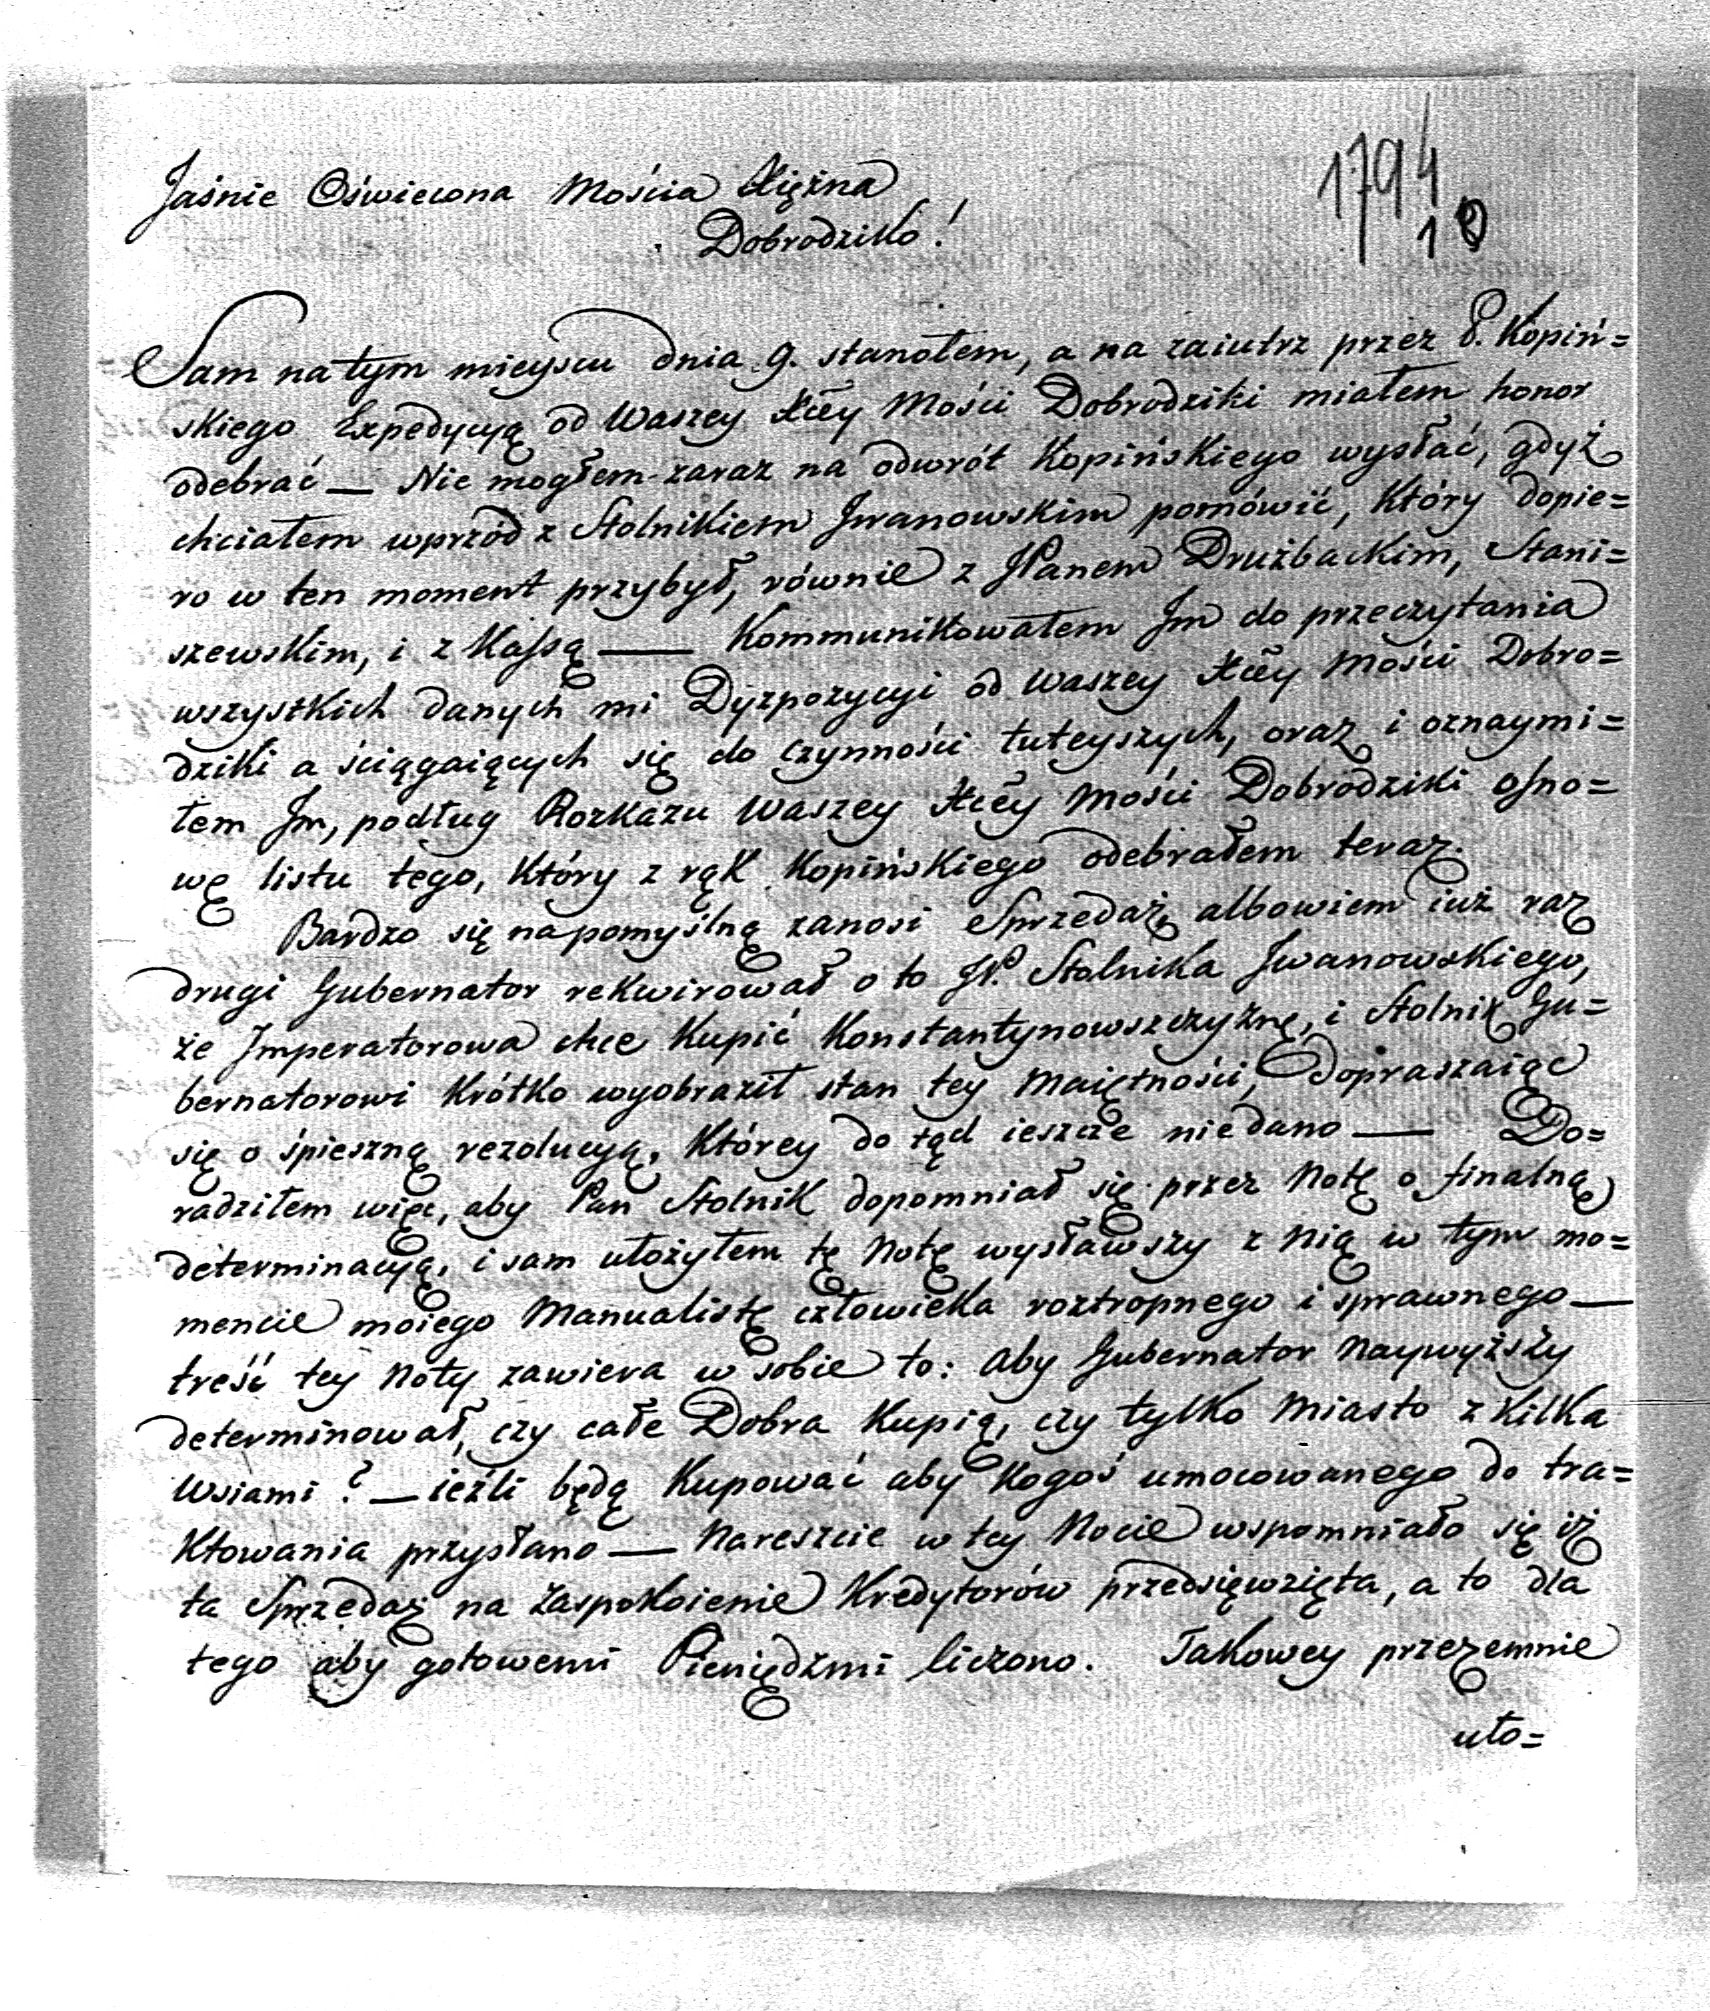 1794
10
Jaśnie Oświecona Mościa Xiężna
Dobrodziko!
Sam na tym mieyscu dnia 9. stanołem, a na zaiutrz przez P. Kopiń=
skiego Expedycyą od Waszey Xcey Mości Dobrodziki miałem honor
odebrać — Nie mogłem zaraz na odwrót Kopińskiego wysłać, gdyż
chciałem wprzód z Stolnikiem Iwanowskim pomówić, który dopie=
ro w ten moment przybył, równie z JPanem Drużbackim, Stani=
szewskim, i z Kassą — Kommunikowałem Jm do przeczytania
wszystkich danych mi Dyzpozycyi od Waszey Xcey Mości Dobro=
dziki a ściągaiących się do czynności tuteyszych, oraz i oznaymi=
łem Jm, podług Rozkazu Waszey Xcey Mości Dobrodziki osno=
wę listu tego, który z rąk Kopińskiego odebrałem teraz.
Bardzo się na pomyślną zanosi Sprzedaż, albowiem iuż raz
drugi Gubernator rekwirował o to JP. Stolnika Iwanowskiego,
że Imperatorowa chce kupić Konstantynowszczyżnę, i Stolnik Gu=
bernatorowi krótko wyobraził stan tey Maiętności, dopraszaiąc
się o śpieszną rezolucyą, którey do tąd ieszcze nie dano — Do=
radziłem więc, aby Pan Stolnik dopomniał się przez Notę o finalną
determinacyą, i sam ułożyłem tę Notę wysławszy z nią w tym mo=
mencie moiego Manualistę człowieka roztropnego i sprawnego —
treść tey Noty zawiera w sobie to: aby Gubernator Naywyższy
determinował, czy całe Dobra kupią, czy tylko Miasto z kilka
Wsiami? — ieźli będą kupować aby kogoś umocowanego do tra=
ktowania przysłano — Nareszcie w tey Nocie wspomniało się iż
ta Sprzedaż na zaspokoienie Kredytorów przedsięwzięta, a to dla
tego aby gotowemi Pieniędzmi liczono. Takowey przezemnie
uło=